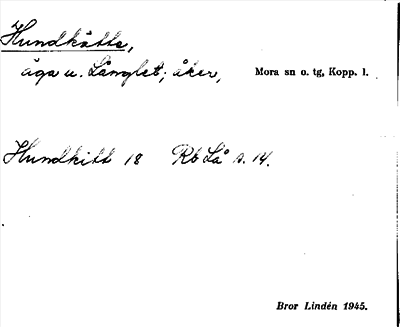 Hundkätte,
äga u. Långlet; åker, Mora sn o. tg, Kopp. l.
Hundkitt 18 Rb Lå s. 14.
Bror Lindén 1945.